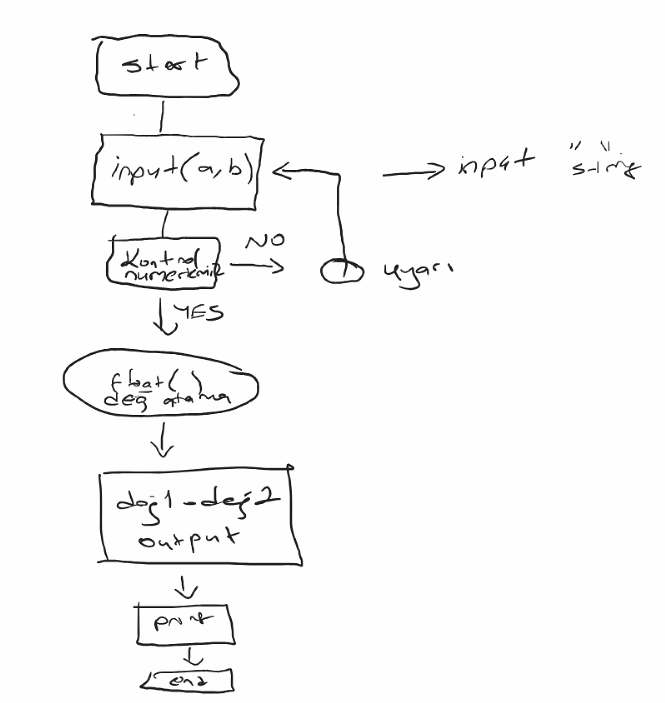 start
input(a,b)
input "string"
Kontrol
numerikmi?
NO
uyarı
YES
float( )
değ atama
değ1-değ2
output
print
end